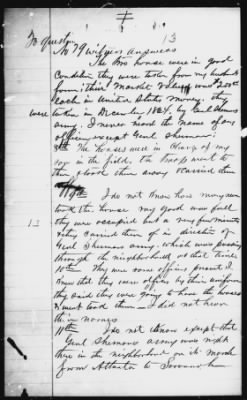 13
To question
No 79 witness answers
The two horses were in good
condition they were taken from my husband's
farm; their market value was $200
each in United States money. They
were taken in December 1864, by Genl Shermans
army; I never heard the name of any
officer except Genl Sherman.
8th The horses were in charge of my
boy in the field. The troops went to
them & took them away & carried them
9th I do not know how many men
took the horses. My yard was full
they were occupied but a very few minutes
they carried them off in direction of
Genl Shermans army, which was passing
through the neighborhood at that time
13
10th There were some officers present I
knew that they were officers by their uniform
they said they were going to have the horses
& went took them I did not hear
their names
11th I do not know except that
Genl Shermans army was right
there in the neighborhood on its march
from Atlanta to Savannah